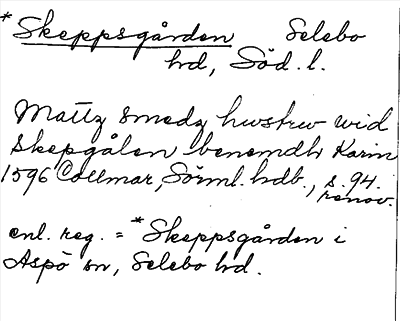 *Skeppsgården Selebo
hd, Söd. l.
Mattz smedz hustru wid
Skepgålen benemdh Karin
1596 Collmar, Sörml. hdb., s. 94.
renov.
enl. reg. = *Skeppsgården i
Aspö sn, Selebo hd.